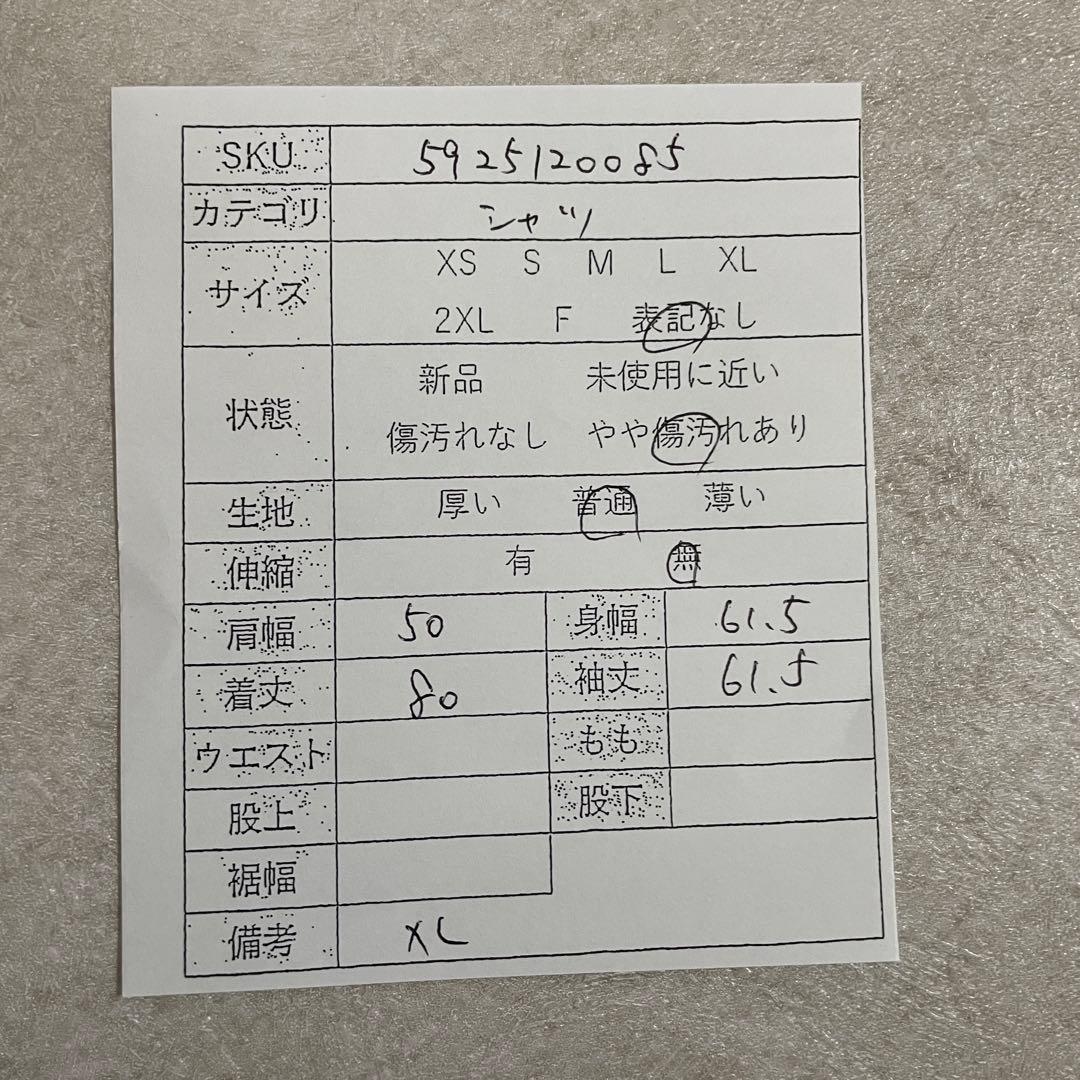 SKU 5925120085
カテゴリ シャツ
サイズ XS S M L XL
2XL F 表記なし
状態 新品 未使用に近い
傷汚れなし やや傷汚れあり
生地 厚い 普通 薄い
伸縮 有 無
肩幅 50 身幅 61.5
着丈 80 袖丈 61.5
ウエスト もも
股上 股下
裾幅
備考 XL